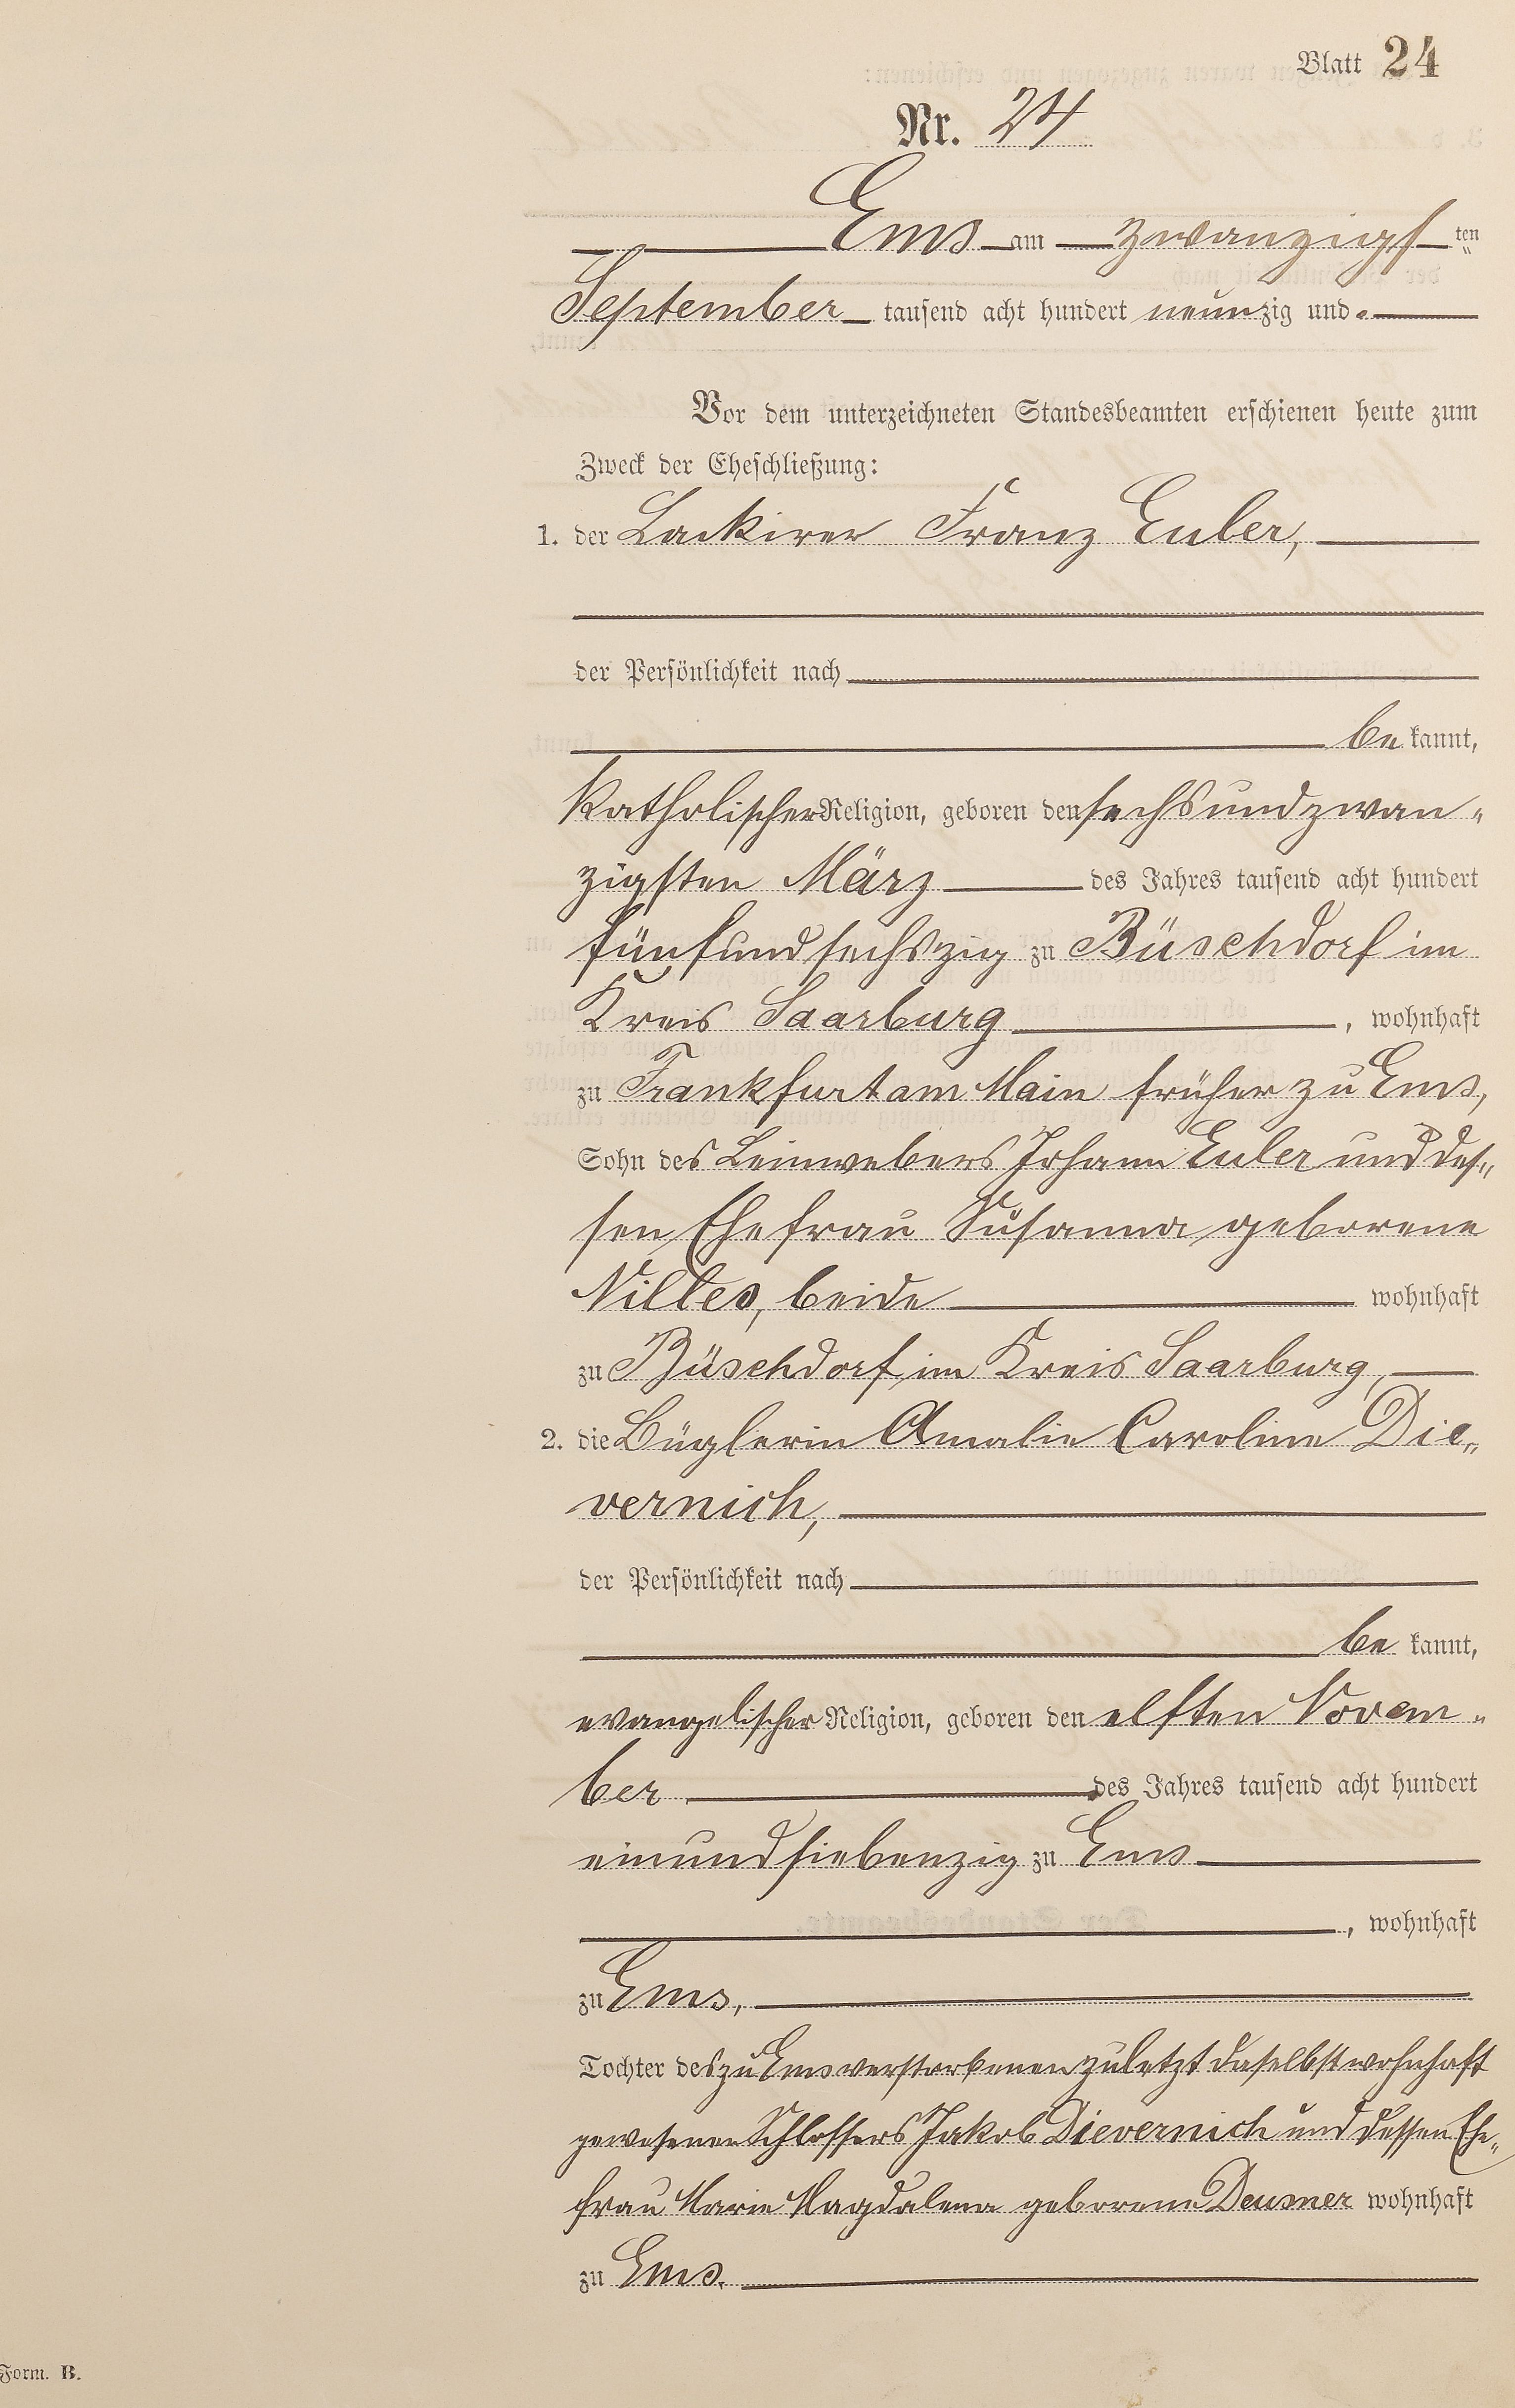 Blatt 24
Nr. 24
Ems am zwanzigsten
September tausend acht hundert neunzig und
Vor dem unterzeichneten Standesbeamten erschienen heute zum
Zweck der Eheschließung:
1. der Lackirer Franz Euler,
der Persönlichkeit nach
be kannt,
katholischer Religion, geboren den sechsundzwan-
zigsten März des Jahres tausend acht hundert
fünfundsechszig zu Büschdorf im
Kreis Saarburg, wohnhaft
zu Frankfurt am Main früher zu Ems,
Sohn des Leinwebers Johann Euler und des-
sen Ehefrau Susanna geborene
Nilles, beide wohnhaft
zu Büschdorf im Kreis Saarburg,
2. die Büglerin Amalie Caroline Die-
vernich,
der Persönlichkeit nach
be kannt,
evangelischer Religion, geboren den elften Novem-
ber des Jahres tausend acht hundert
einundsiebenzig zu Ems
, wohnhaft
zu Ems,
Tochter des zu Ems verstorbenen zuletzt daselbst wohnhaft
gewesenen Schlossers Jakob Dievernich und dessen Ehe-
frau Marie Magdalena geborene Deusner wohnhaft
zu Ems.
Form. B.